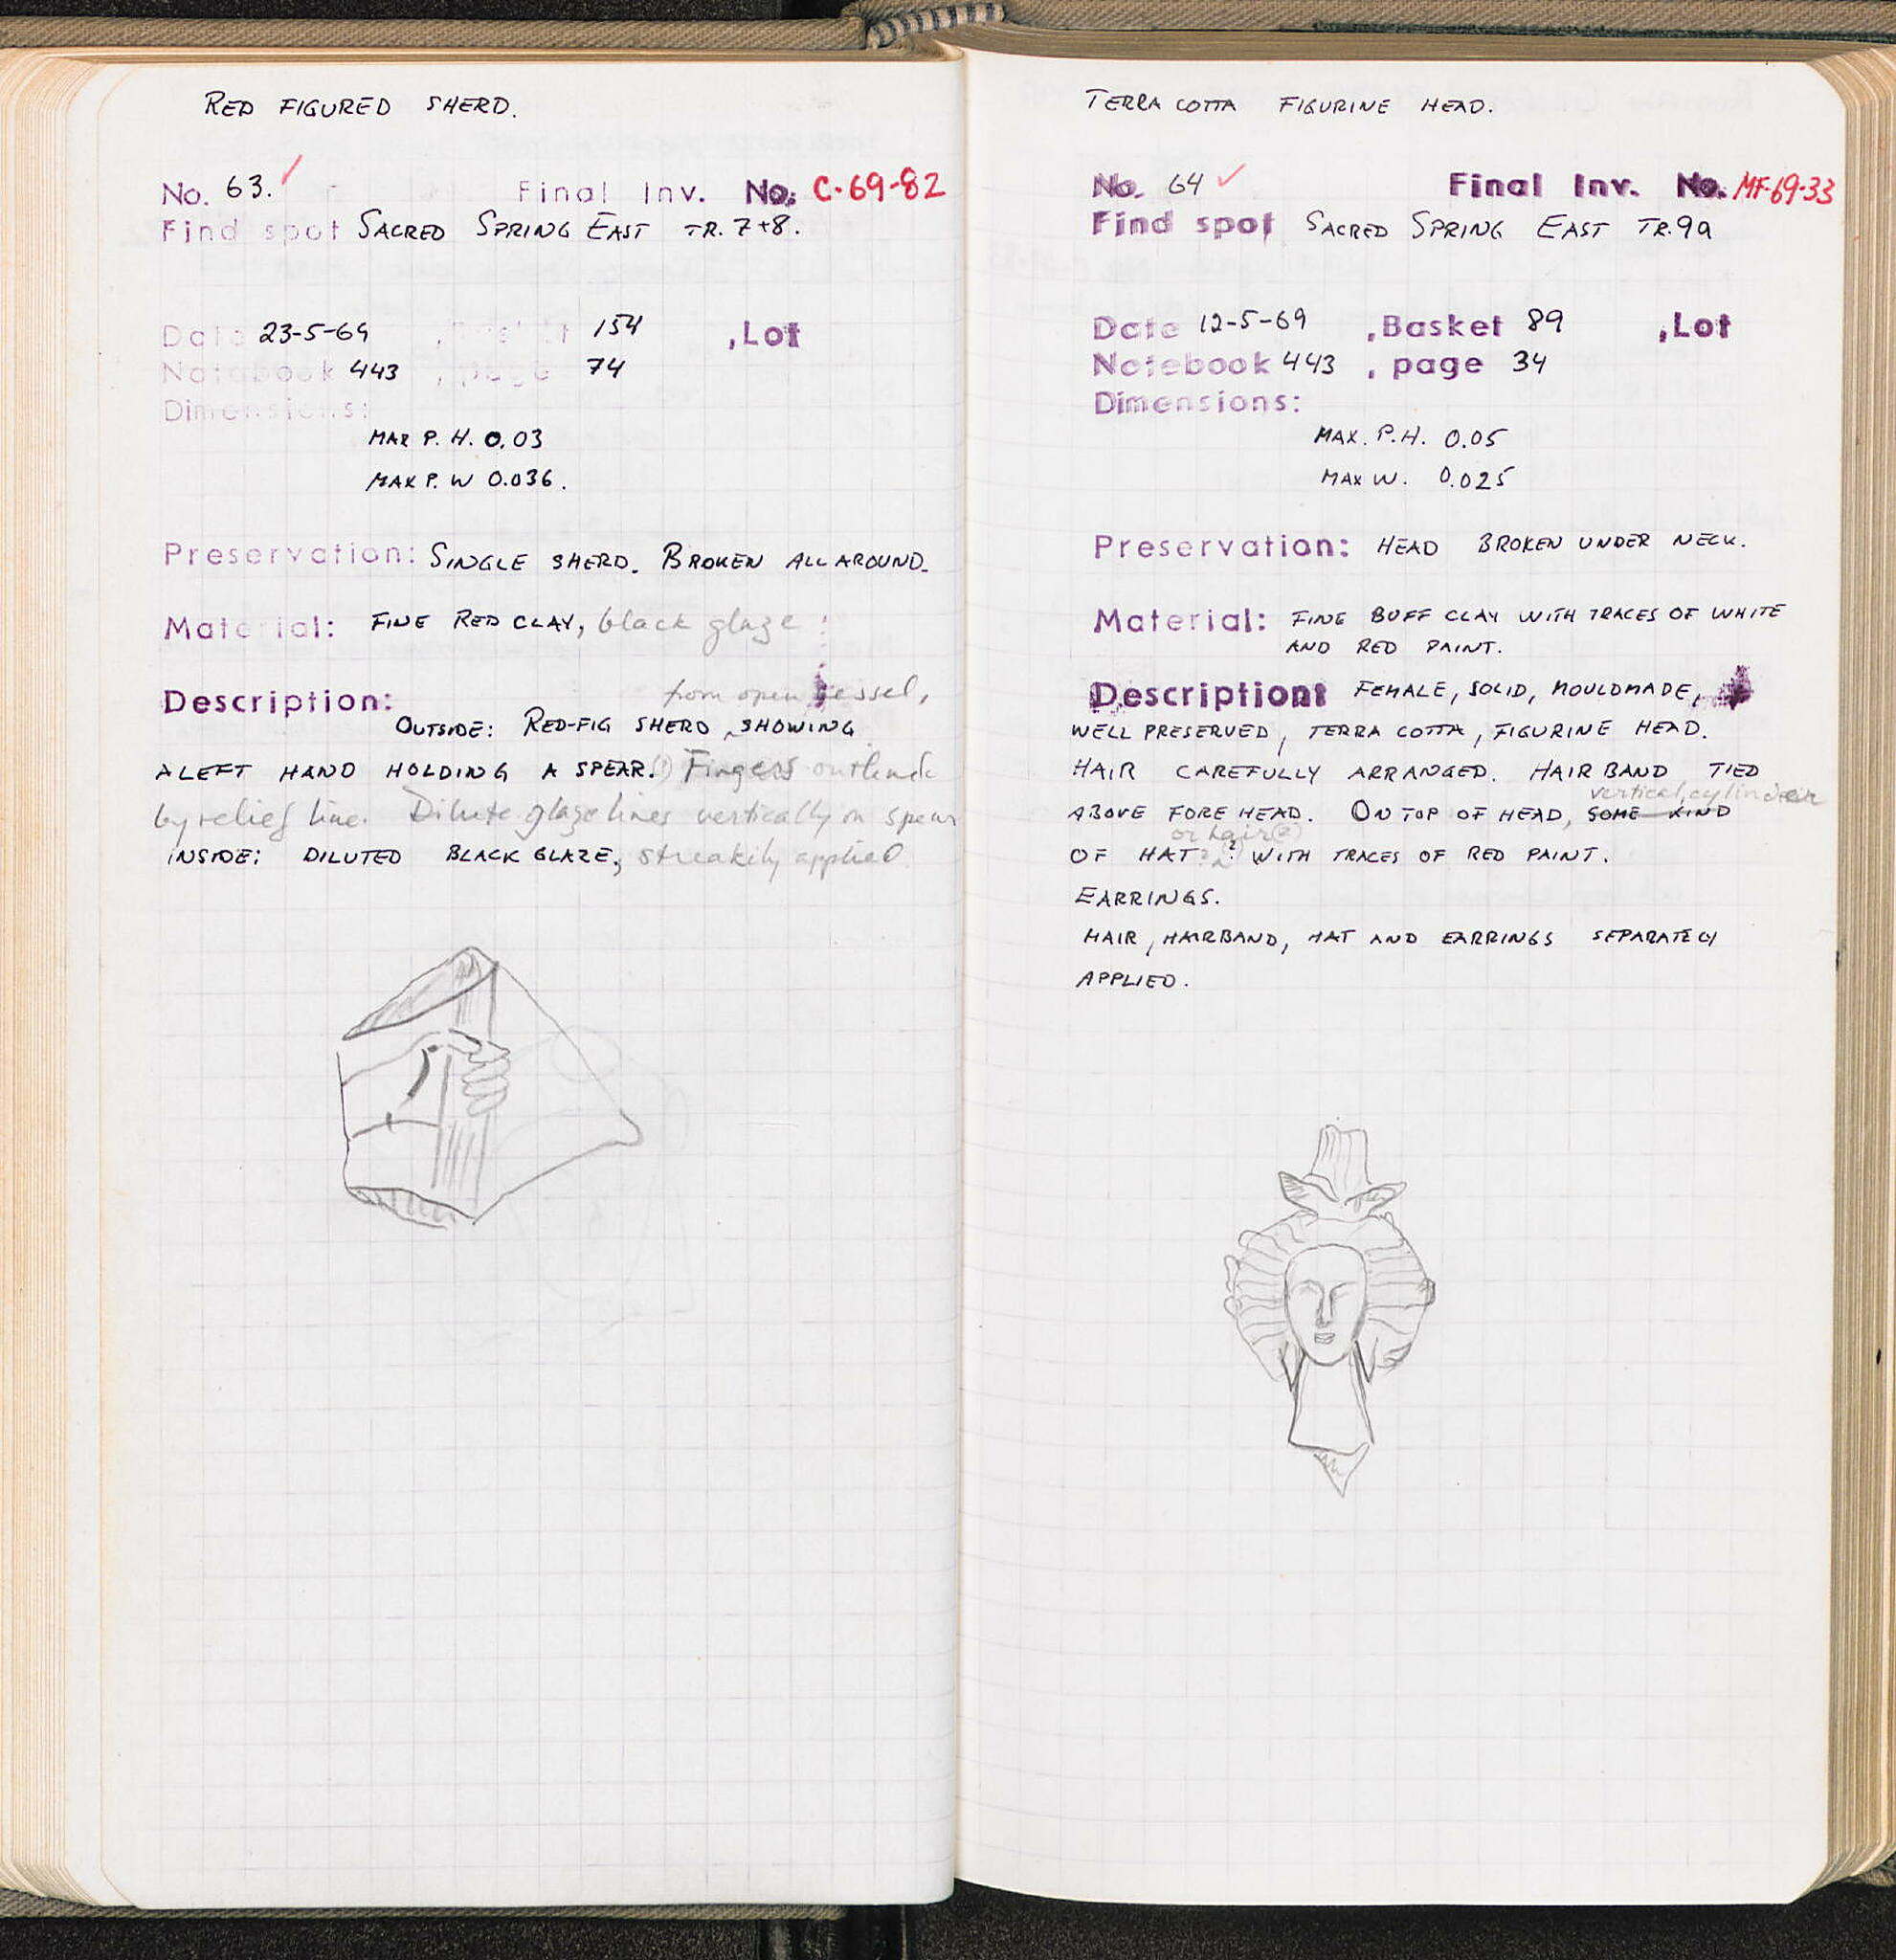 RED FIGURED SHERD.
No. 63. ✓ Final Inv. No: C-69-82
Find spot SACRED SPRING EAST TR. 7+8.
Date 23-5-69 , Basket 154 , Lot
Notebook 443 , page 74
Dimensions:
MAX P. H. 0.03
MAX P. W 0.036.
Preservation: SINGLE SHERD. BROKEN ALL AROUND.
Material: FINE RED CLAY, black glaze
from open vessel,
Description:
OUTSIDE: RED-FIG SHERD ‸ SHOWING
A LEFT HAND HOLDING A SPEAR.(?) Fingers outlined
by relief line. Dilute glaze lines vertically on spear
INSIDE: DILUTED BLACK GLAZE, streakily applied
TERRA COTTA FIGURINE HEAD.
No. 64 ✓ Final Inv. No. MF-69-33
Find spot SACRED SPRING EAST TR. 9a
Date 12-5-69 , Basket 89 , Lot
Notebook 443 , page 34
Dimensions:
MAX. P.H. 0.05
MAX W. 0.025
Preservation: HEAD BROKEN UNDER NECK.
Material: FINE BUFF CLAY WITH TRACES OF WHITE
AND RED PAINT.
Description: FEMALE, SOLID, MOULDMADE,
WELL PRESERVED, TERRA COTTA, FIGURINE HEAD.
HAIR CAREFULLY ARRANGED. HAIR BAND TIED
vertical, cylinder
ABOVE FOREHEAD. ON TOP OF HEAD, SOME KIND
or hair(?)
OF HAT ? WITH TRACES OF RED PAINT.
EARRINGS.
HAIR, HAIRBAND, HAT AND EARRINGS SEPARATELY
APPLIED.